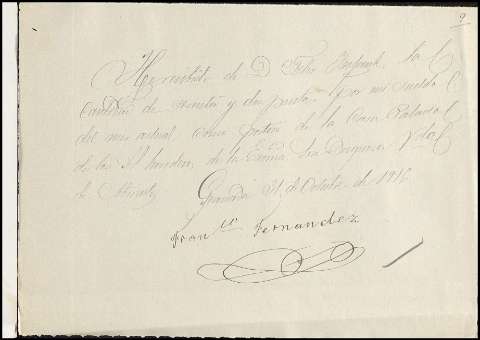 9
He recibido de D Felix la
cantidad de treinta y dos pesetas por mi sueldo
del mes actual como de la Casa Palacio
de los de la Exma Sra Duquesa Vda
de
Granada 31 de Octubre de 1916
Franco Fernandez